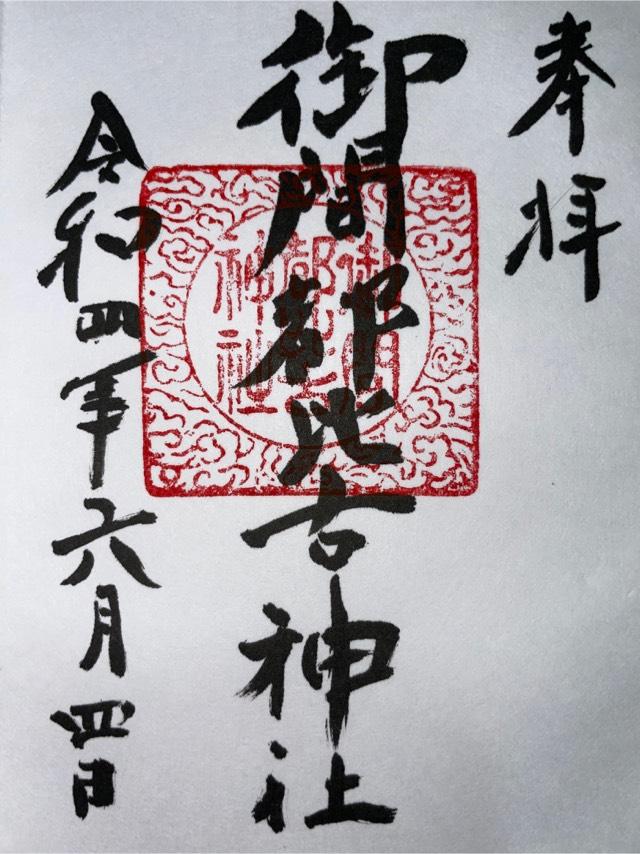 奉拝
御間都比古神社
令和四年六月四日
御間都比古神社